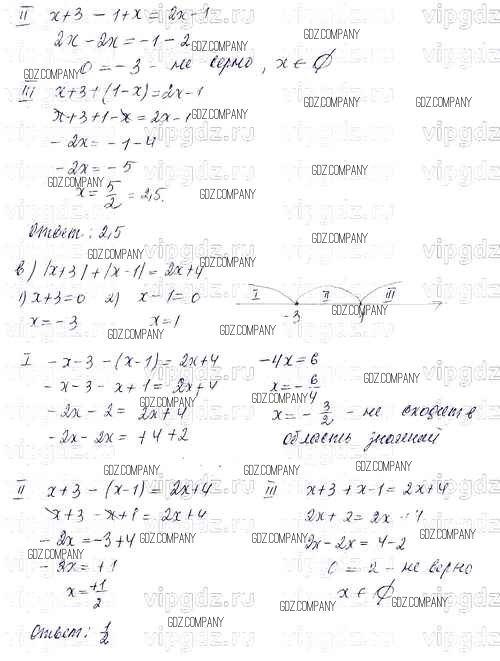 II x+3 -1+x = 2x-1
2x-2x = -1-2
0 = -3 - не верно, x ∈ ∅
III x+3+(1-x) = 2x-1
x+3+1-x = 2x-1
-2x = -1-4
-2x = -5
x = 5/2 = 2,5.
Ответ: 2,5
в) |x+3| + |x-1| = 2x+4
1) x+3=0 2) x-1=0
x = -3 x=1
I II III
-3 1
I -x-3-(x-1) = 2x+4
-x-3-x+1 = 2x+4
-2x-2 = 2x+4
-2x-2x = +4+2
-4x = 6
x = -6/4
x = -3/2 - не входит в
область значений
II x+3-(x-1) = 2x+4
x+3-x+1 = 2x+4
-2x = -3+4
-2x = +1
x = +1/2
Ответ: 1/2
III x+3+x-1 = 2x+4
2x+2 = 2x+4
2x-2x = 4-2
0 = 2 - не верно
x ∈ ∅
GDZ.COMPANY
vipgdz.ru